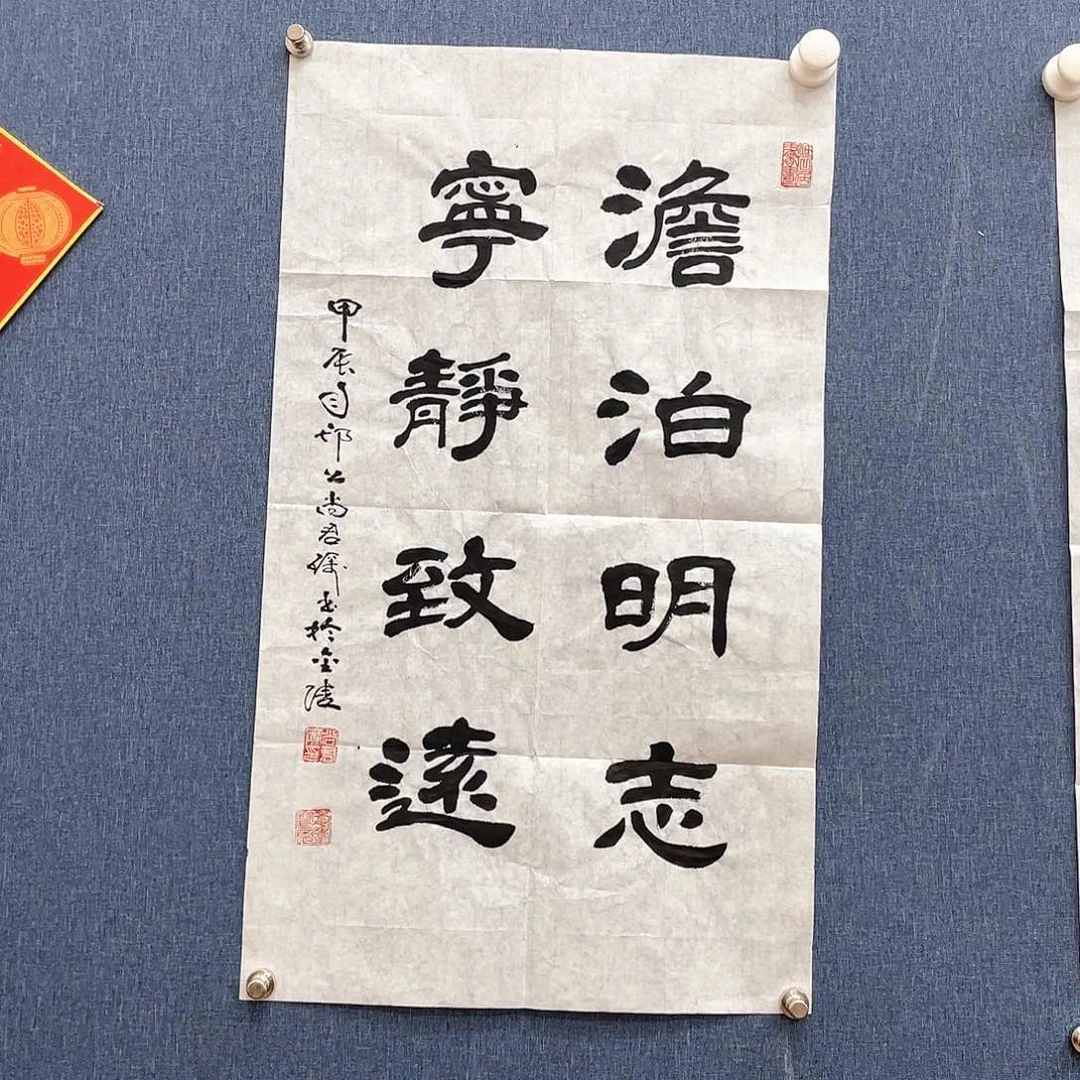 澹泊明志
寧靜致遠
甲辰 尚君 書於金陵